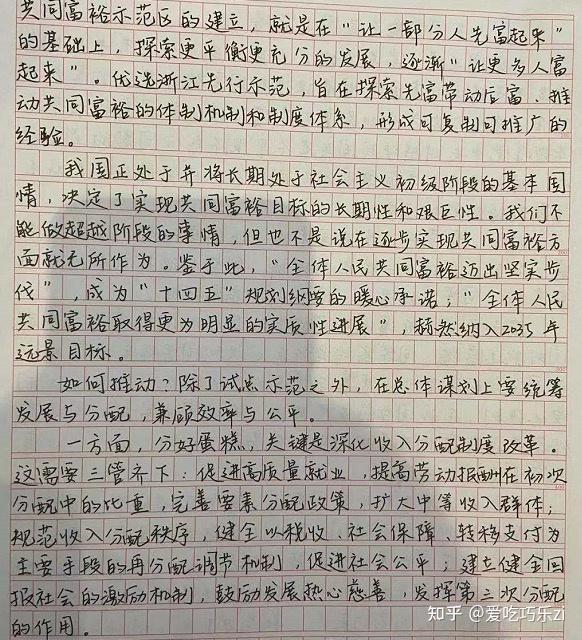 共同富裕示范区的建立，就是在“让一部分人先富起来”
的基础上，探索更平衡更充分的发展，逐渐“让更多人富
起来”。优选浙江先行示范，旨在探索先富带动后富、推
动共同富裕的体制机制和制度体系，形成可复制可推广的
经验。
我国正处于并将长期处于社会主义初级阶段的基本国
情，决定了实现共同富裕目标的长期性和艰巨性。我们不
能做超越阶段的事情，但也不是说在逐步实现共同富裕方
面就无所作为。鉴于此，“全体人民共同富裕迈出坚实步
伐”，成为“十四五”规划纲要的暖心承诺；“全体人民
共同富裕取得更为明显的实质性进展”，赫然纳入2035年
远景目标。
如何推动？除了试点示范之外，在总体谋划上要统筹
发展与分配，兼顾效率与公平。
一方面，分好蛋糕，关键是深化收入分配制度改革。
这需要三管齐下：促进高质量就业，提高劳动报酬在初次
分配中的比重，完善要素分配政策，扩大中等收入群体；
规范收入分配秩序，健全以税收、社会保障、转移支付为
主要手段的再分配调节机制，促进社会公平；建立健全回
报社会的激励机制，鼓励发展热心慈善，发挥第三次分配
的作用。
知乎 @爱吃巧乐zi